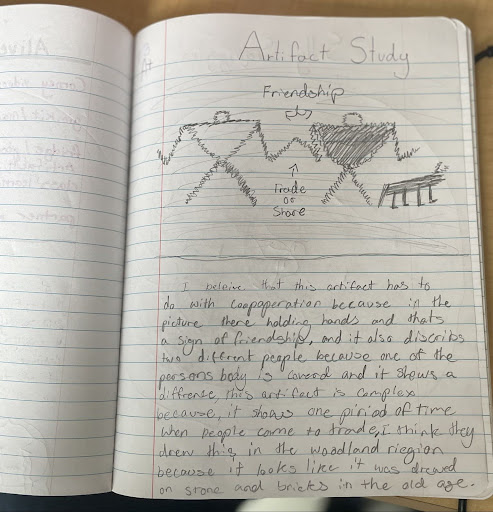 Artifact Study
Friendship
Trade
or
Share
I beleive that this artifact has to
do with coopoperation because in the
picture there holding hands and thats
a sign of friendship, and it also discribs
two different people because one of the
persons body is coverd and it shows a
diffrense, this artifact is complex
because, it shows one piriod of time
when people come to trade, i think they
drew this in the woodland riegion
because it looks like it was drewed
on stone and bricks in the old age.